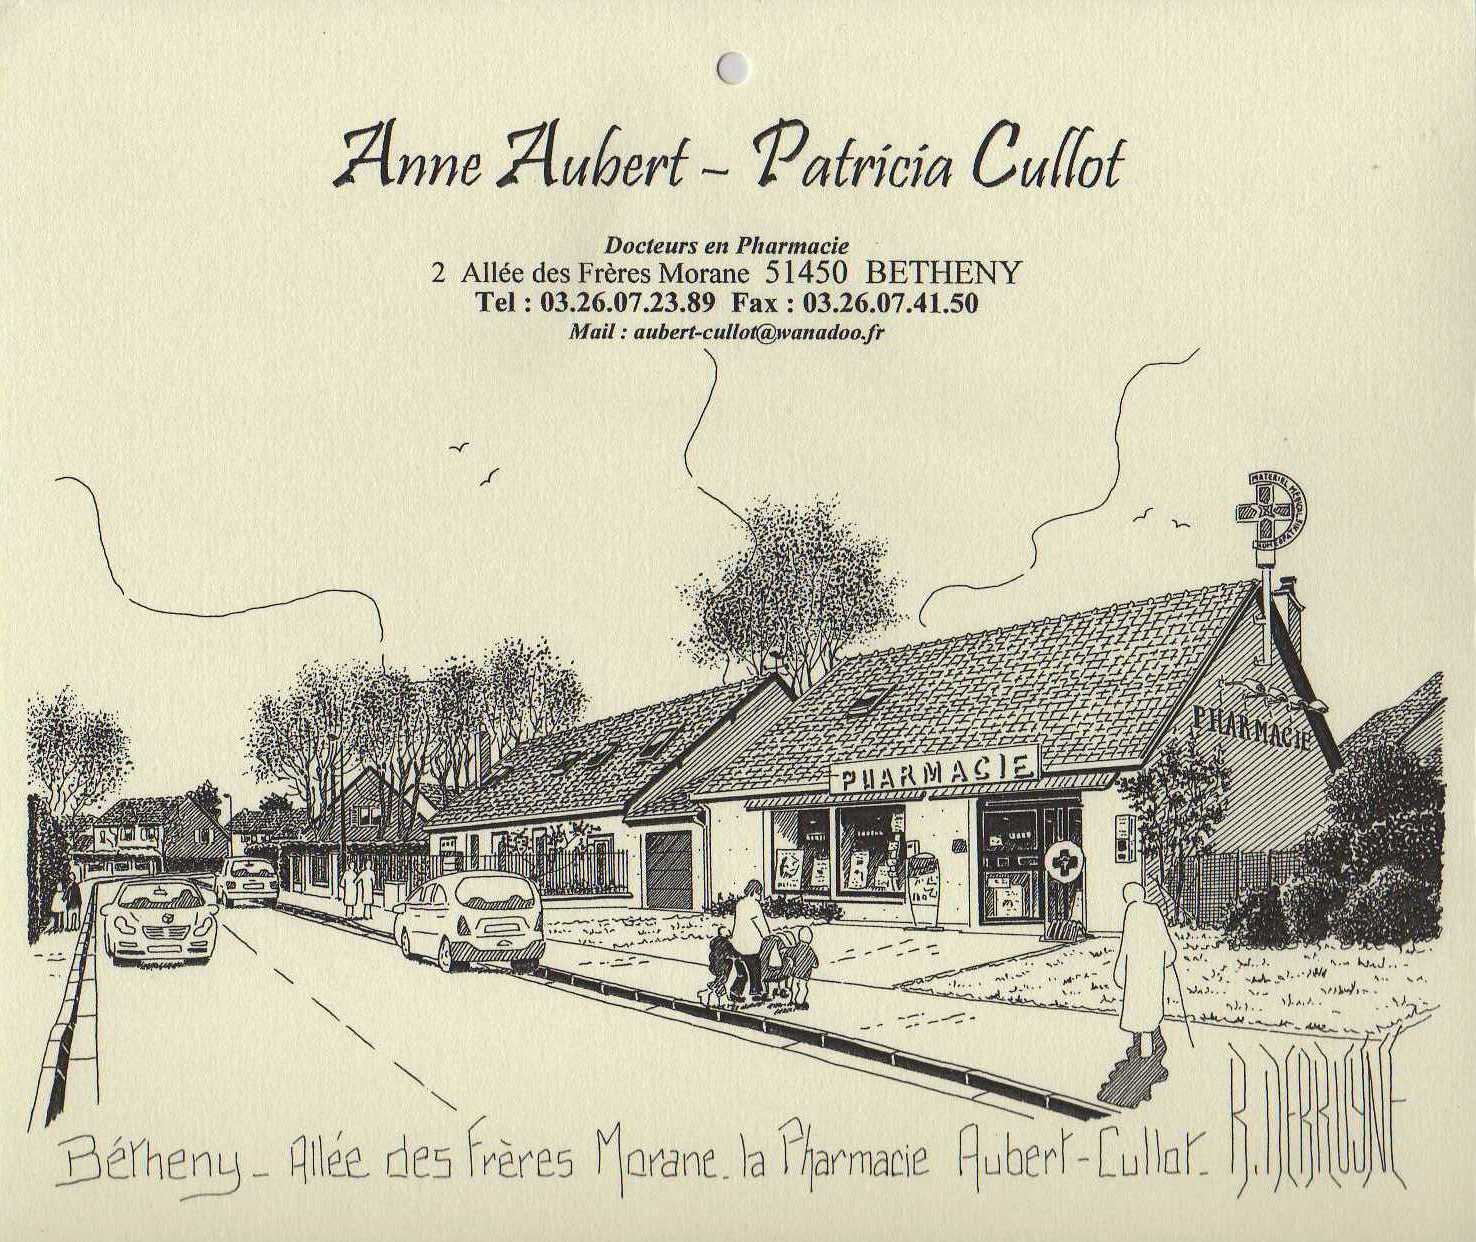 Anne Aubert - Patricia Cullot
Docteurs en Pharmacie
2 Allée des Frères Morane 51450 BETHENY
Tel : 03.26.07.23.89 Fax : 03.26.07.41.50
Mail : aubert-cullot@wanadoo.fr
MATERIEL MEDICAL
HOMEOPATHIE
PHARMACIE
PHARMACIE
R. DEBRUYNE
Bétheny - Allée des Frères Morane. la Pharmacie Aubert-Cullot.